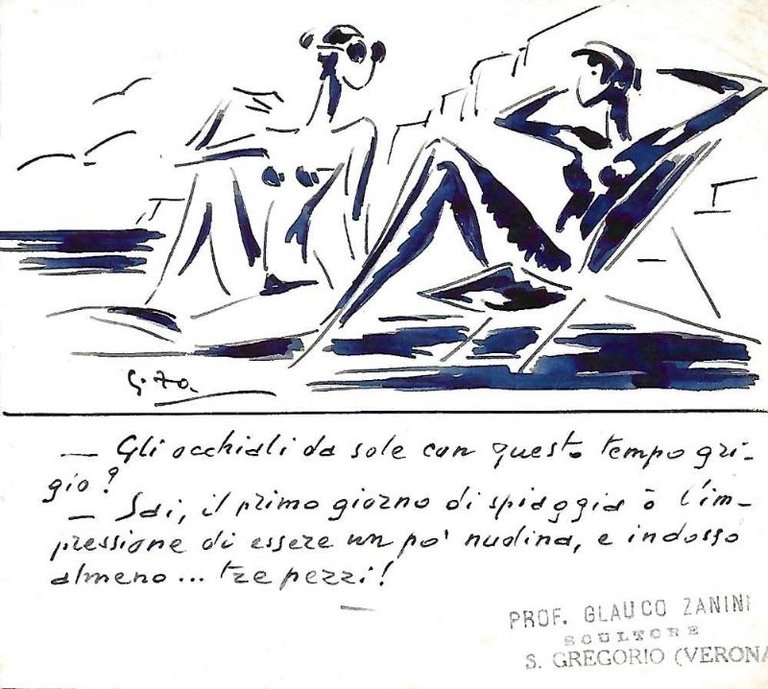 G. Za.
— Gli occhiali da sole con questo tempo gri-
gio?
— Sai, il primo giorno di spiaggia ò l'im-
pressione di essere un po' nudina, e indosso
almeno... tre pezzi!
PROF. GLAUCO ZANINI
SCULTORE
S. GREGORIO (VERONA